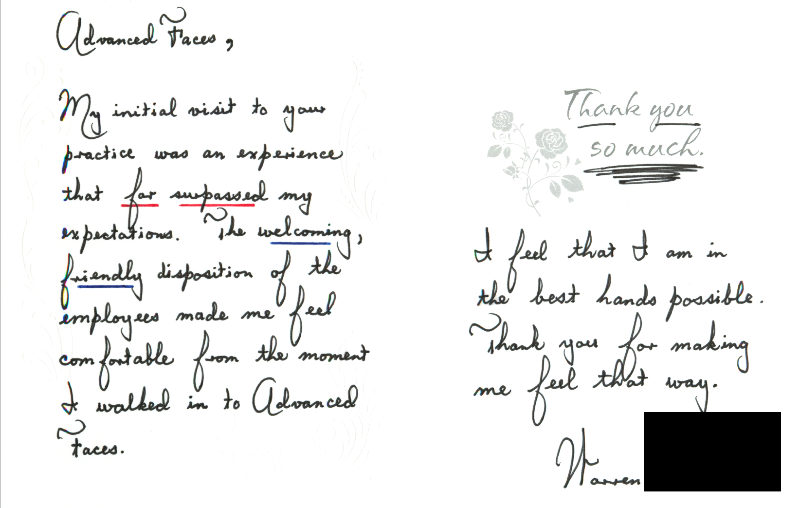 Advanced Faces,
My initial visit to your
practice was an experience
that far surpassed my
expectations. The welcoming,
friendly disposition of the
employees made me feel
comfortable from the moment
I walked in to Advanced
Faces.
Thank you
so much.
I feel that I am in
the best hands possible.
Thank you for making
me feel that way.
Warren